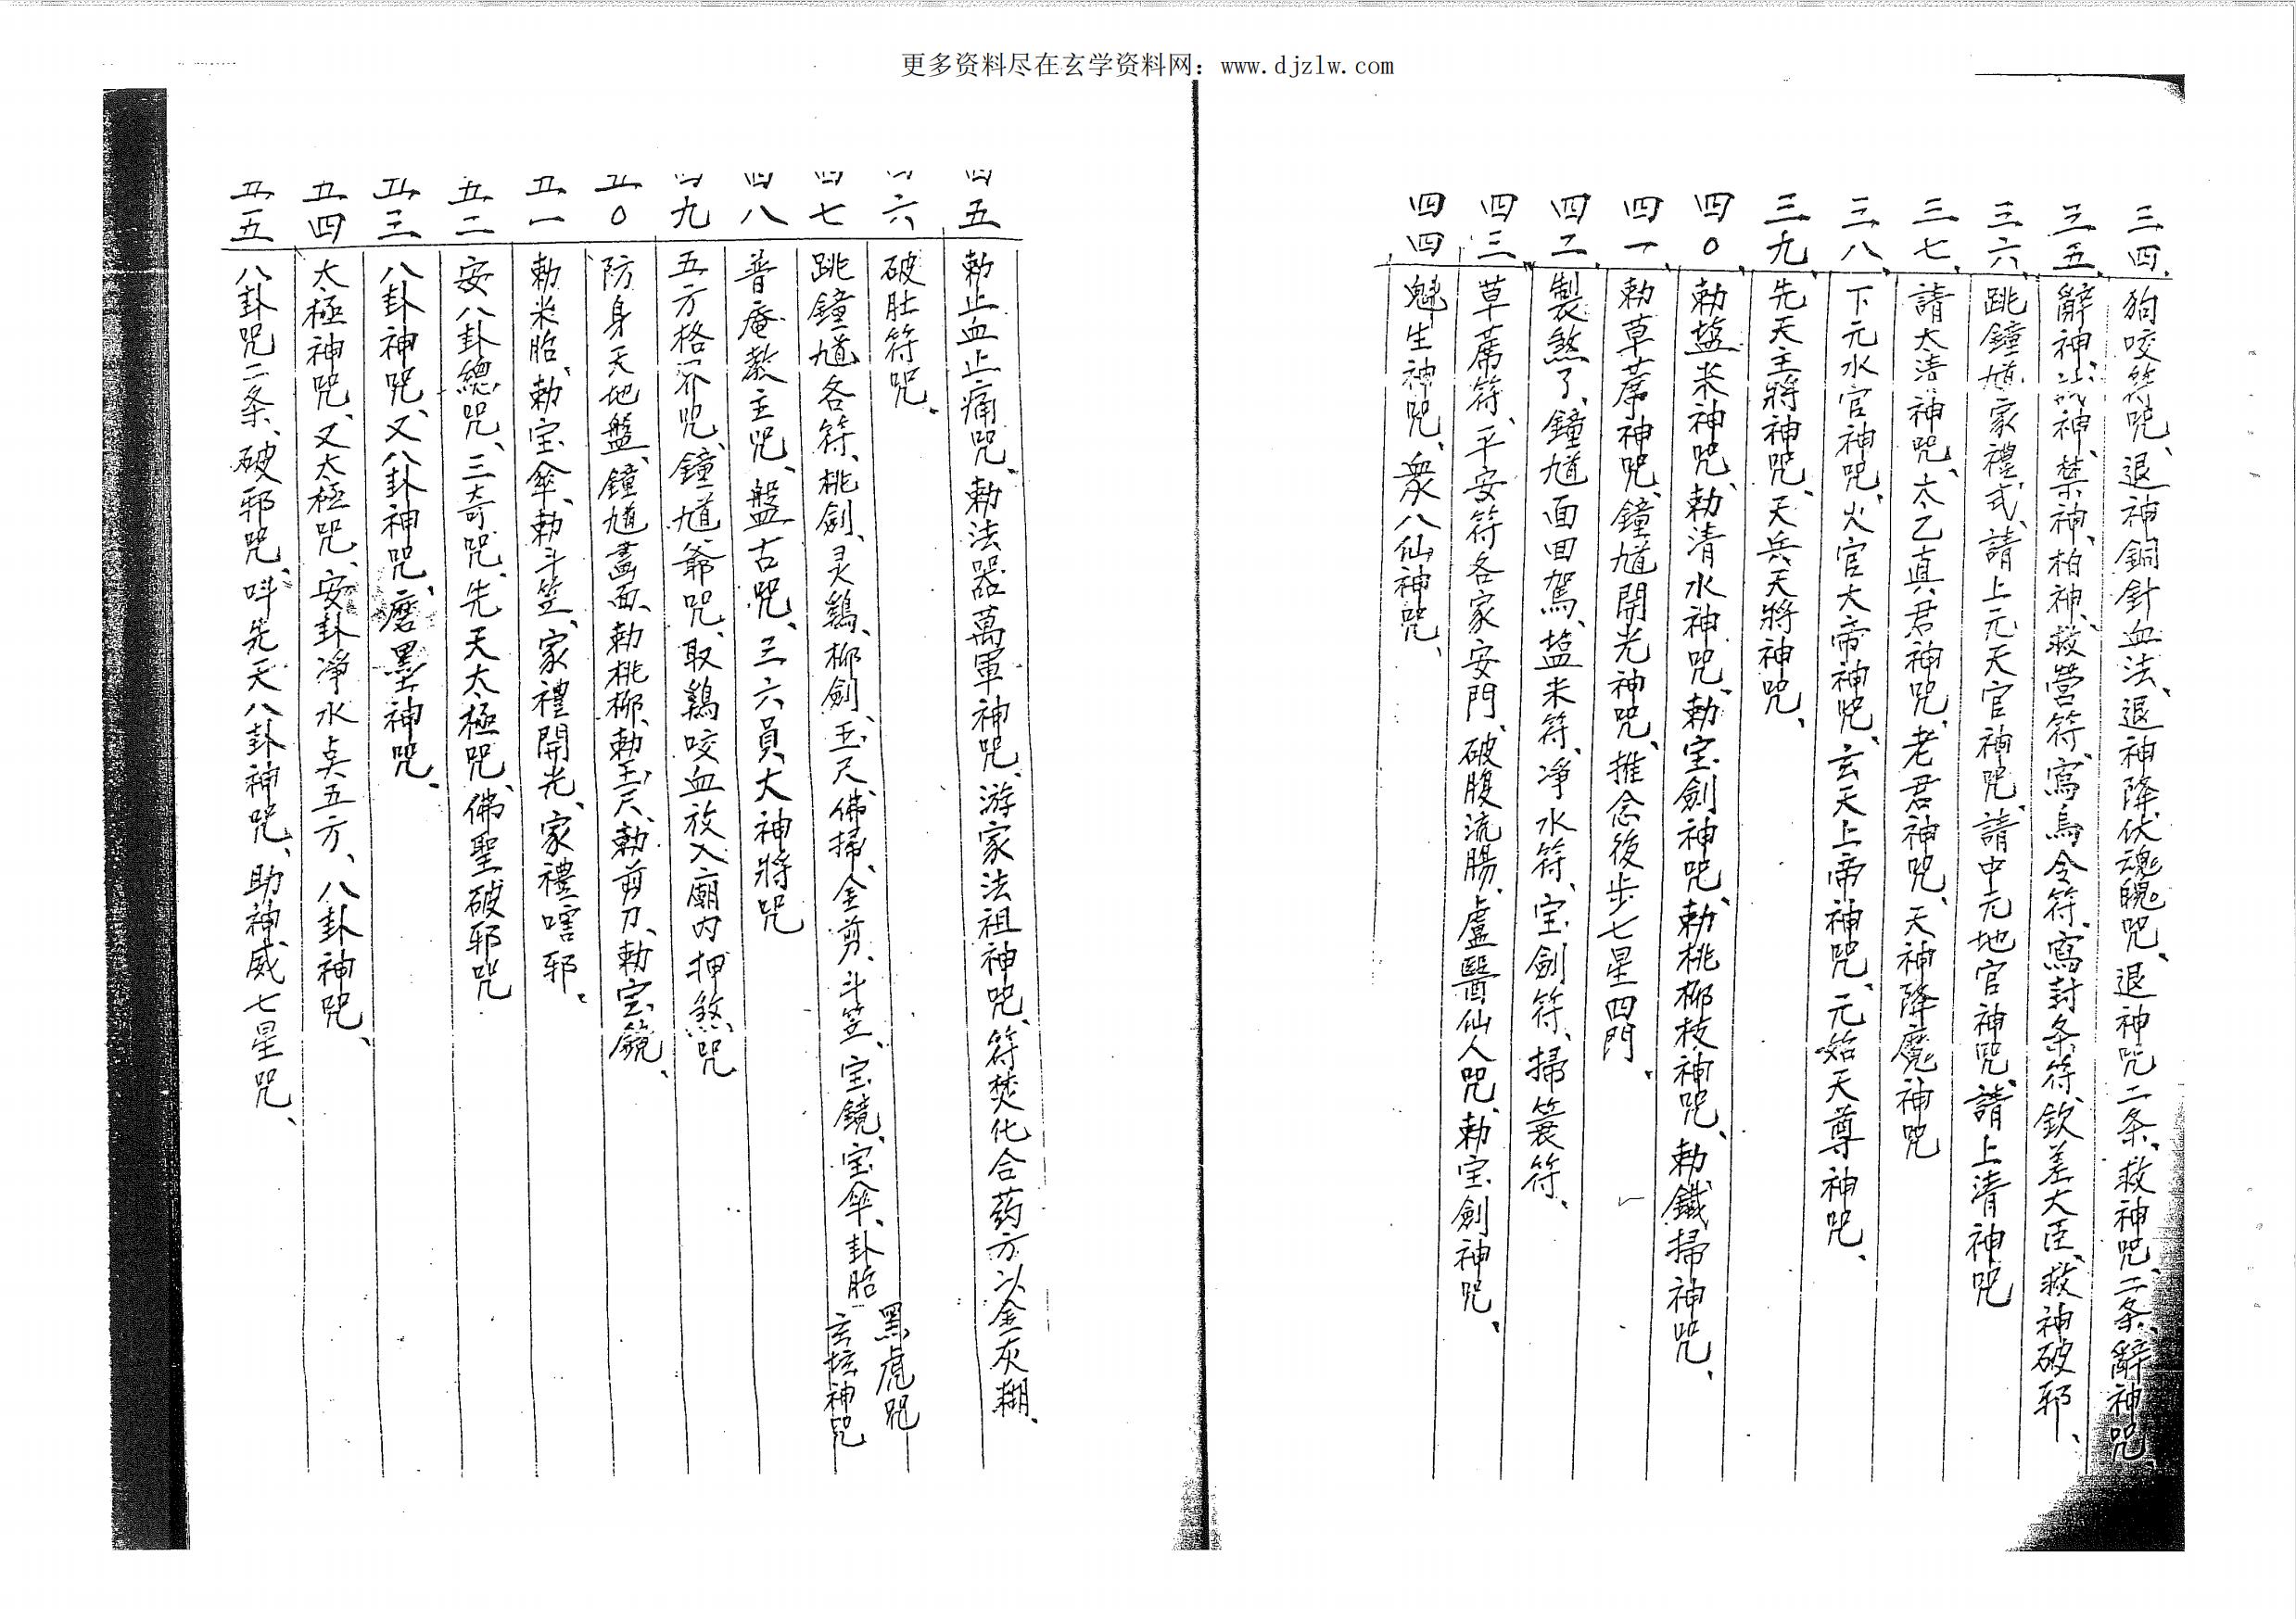 更多资料尽在玄学资料网：www.djzlw.com
三四、狗咬符咒、退神銅針血法、退神降伏魂魄咒、退神咒二条、救神咒二条、辭神咒、
三五、辭神、神、禁神、柏神、救营符、寫烏令符、寫封条符、欽差大臣、救神破邪、
三六、跳鐘馗家禮式、請上元天官神咒、請中元地官神咒、請上清神咒
三七、請太清神咒、太乙真君神咒、老君神咒、天神降魔神咒
三八、下元水官神咒、火官大帝神咒、玄天上帝神咒、元始天尊神咒、
三九、先天主將神咒、天兵天將神咒、
四〇、勅塩米神咒、勅清水神咒、勅宝劍神咒、勅桃柳枝神咒、勅鐵掃神咒、
四一、勅草蓆神咒、鐘馗開光神咒、推念後步七星四門、
四二、製煞了、鐘馗面回駕、塩米符、凈水符、宝劍符、掃簑符、
四三、草蓆符、平安符各家安門、破腹流腸、盧醫仙人咒、勅宝劍神咒、
四四 魁生神咒、衆八仙神咒、
四五 勅止血止痛咒、勅法器萬軍神咒、游家法祖神咒、符焚化合药方以金灰糊、
四六 破肚符咒、
黑虎咒
四七 跳鐘馗各符、桃劍、灵鷄、柳劍、玉尺、佛掃、金剪、斗笠、宝鏡、宝傘、卦胎
玄坛神咒
四八 普庵教主咒、盤古咒、三六員大神將咒
四九 五方格界咒、鐘馗爺咒、取鷄咬血放入廟内押煞咒
五〇 防身天地盤、鐘馗畫面、勅桃柳、勅玉尺、勅剪刀、勅宝鏡、
五一 勅米胎、勅宝傘、勅斗笠、家禮開光、家禮嗐邪、
五二 安八卦總咒、三奇咒、先天太極咒、佛聖破邪咒
五三 八卦神咒、又八卦神咒、磨墨神咒、
五四 太極神咒、又太極咒、安卦凈水点五方、八卦神咒、
五五 八卦咒二条、破邪咒、呌先天八卦神咒、助神威七星咒、